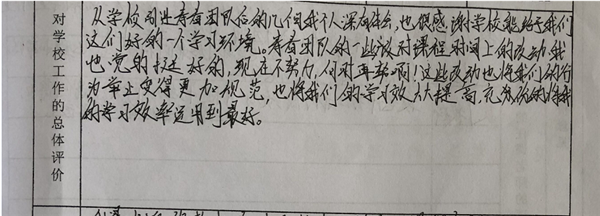 对学校工作的总体评价
从学校创业青春团队后的几何我个人深有体会,也很感谢学校能给予我们
这们好的一个学习环境。青春团队的一些议对课程时间上的改动,我
也觉的挺好的,现在不努力,何时再帮啊!这些改动也将我们的行
为举止变得更加规范,也将我们的学习效大大提高,充分的将我
的学习效率运用到最好。